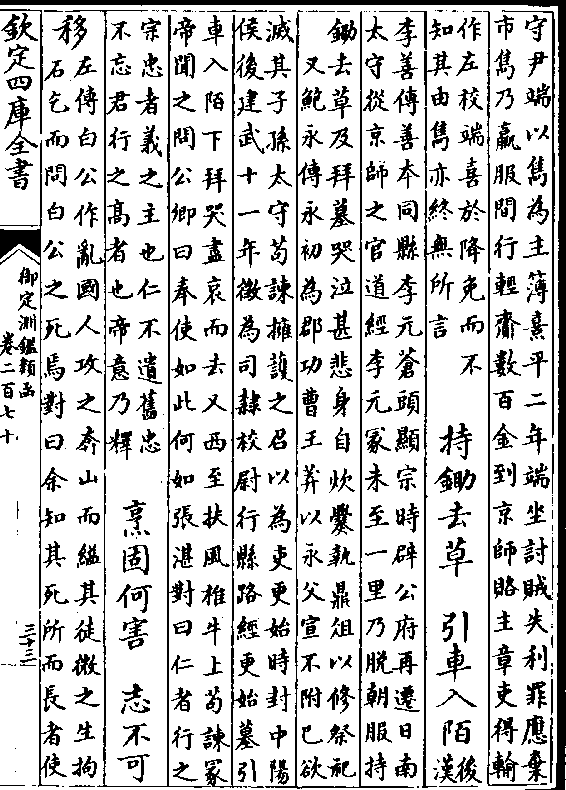 守尹端以雋為主薄熹平二年端坐討賊失利罪應棄
市雋乃羸服間行輕齎數百金到京師賂主章吏得輸
作左校端喜於降免而不
知其由雋亦終無所言
持鋤去草　引車入陌
後
漢
李善傳善本同縣李元蒼頭顯宗時辟公府再遷日南
太守從京師之官道經李元冢未至一里乃脫朝服持
鋤去草及拜墓哭泣甚悲身自炊爨執鼎俎以修祭祀
又鮑永傳永初為郡功曹王莽以永父宣不附已欲
滅其子孫太守苟諫擁護之召以為吏更始時封中陽
侯後建武十一年徵為司隸校尉行縣路經更始墓引
車入陌下拜哭盡哀而去又西至扶風椎牛上苟諫冢
帝聞之問公卿曰奉使如此何如張湛對曰仁者行之
宗忠者義之主也仁不遺舊忠
不忘君行之高者也帝意乃釋
烹固何害　志不可
移
左傳白公作亂國人攻之奔山而縊其徒微之生拘
石乞而問白公之死焉對曰余知其死所而長者使
欽定四庫全書
御定淵鑑類函
卷二百七十
三十三